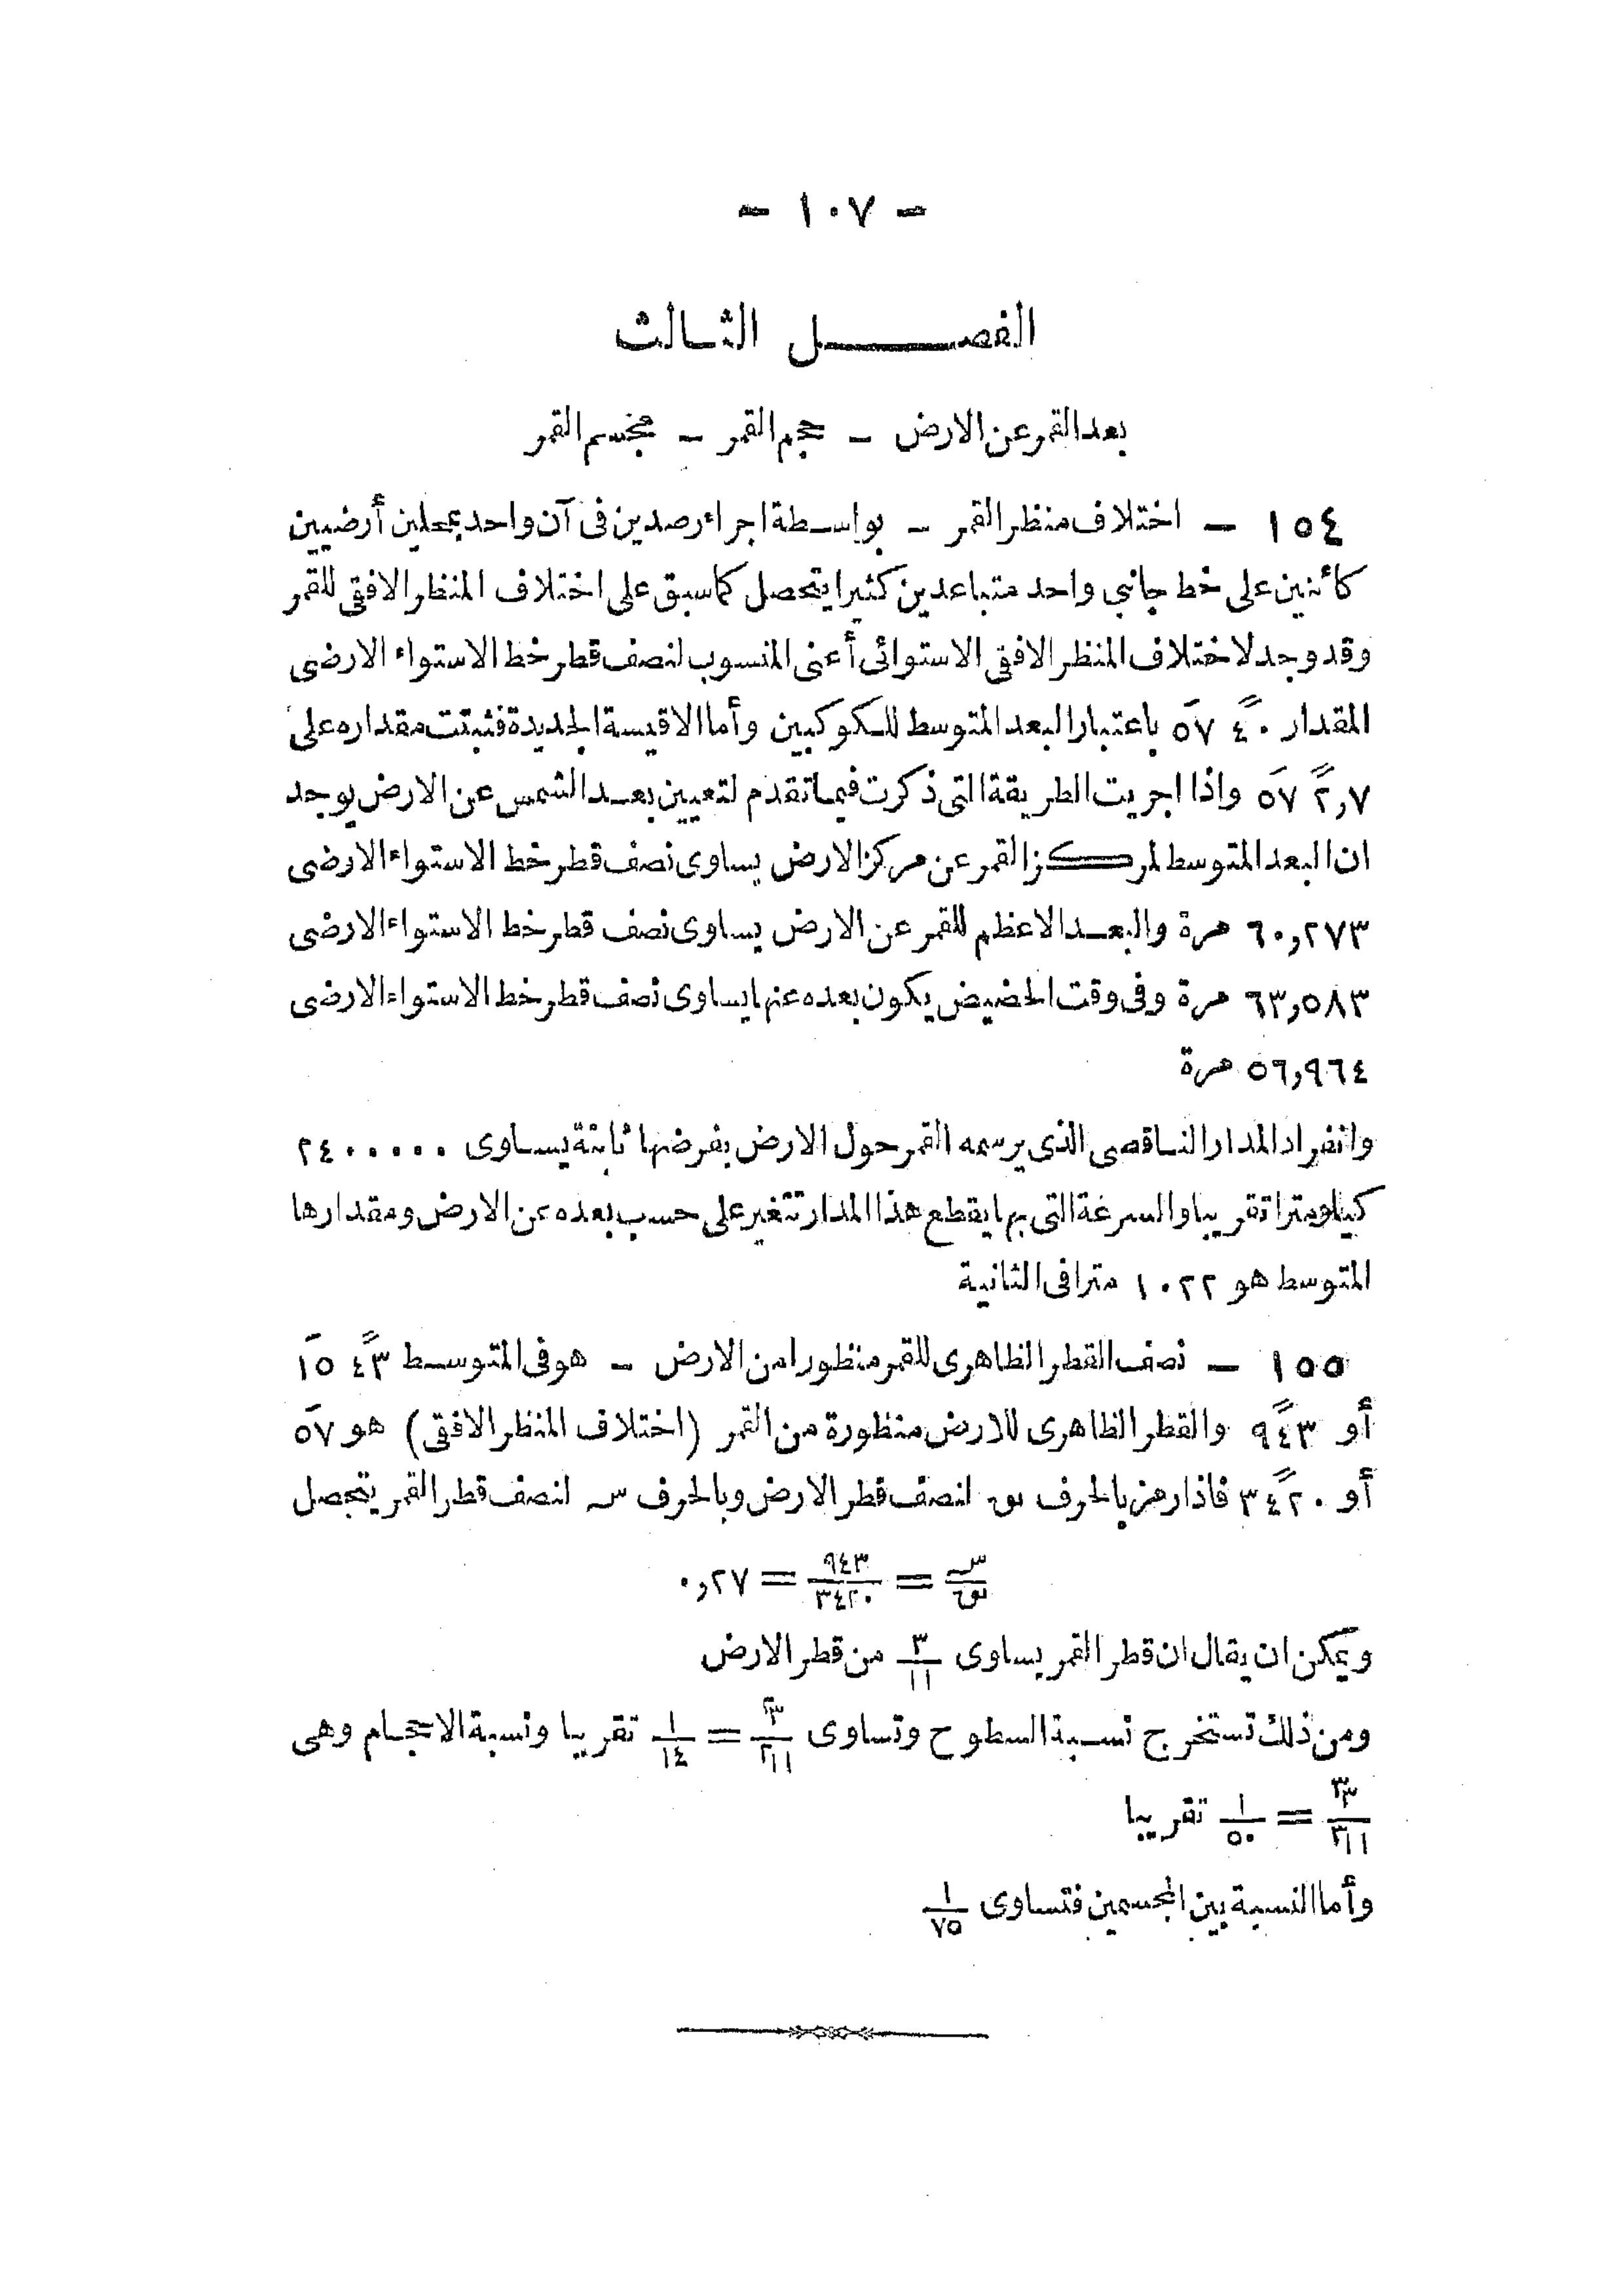 - ١٠٧ -
الفصل الثالث
بعد القمر عن الارض - حجم القمر - مجسم القمر
١٥٤ - اختلاف منظر القمر - بواسطة اجراء رصدين فى آن واحد بمحلين أرضيين
كائنين على خط جانبي واحد متباعدين كثيرا يتحصل كما سبق على اختلاف المنظر الافقى للقمر
وقد وجد لاختلاف المنظر الافقى الاستوائى أعنى المنسوب لنصف قطر خط الاستواء الارضى
المقدار ٤٠ً ٥٧َ باعتبار البعد المتوسط للكوكبين وأما الاقيسة الجديدة فثبتت مقداره على
٢,٧ً ٥٧َ واذا اجريت الطريقة التى ذكرت فيما تقدم لتعيين بعد الشمس عن الارض يوجد
ان البعد المتوسط لمركز القمر عن مركز الارض يساوى نصف قطر خط الاستواء الارضى
٦٠,٢٧٣ مرة والبعد الاعظم للقمر عن الارض يساوى نصف قطر خط الاستواء الارضى
٦٣,٥٨٣ مرة وفى وقت الحضيض يكون بعده عنها يساوى نصف قطر خط الاستواء الارضى
٥٦,٩٦٤ مرة
وانفراد المدار الناقصى الذى يرسمه القمر حول الارض بفرضها ثابتة يساوى ٢٤٠٠٠٠٠
كيلومترا تقريبا والسرعة التى بها يقطع هذا المدار تتغير على حسب بعده عن الارض ومقدارها
المتوسط هو ١٠٢٢ مترا فى الثانية
١٥٥ - نصف القطر الظاهرى للقمر منظورا من الارض - هو فى المتوسط ٤٣ً ١٥َ
أو ٩٤٣ً والقطر الظاهرى للارض منظورة من القمر (اختلاف المنظر الافقى) هو ٥٧َ
أو ٣٤٢٠ً فاذا رمز بالحرف نق لنصف قطر الارض وبالحرف س لنصف قطر القمر يتحصل
س/نق = ٩٤٣/٣٤٢٠ = ٠,٢٧
ويمكن ان يقال ان قطر القمر يساوى ٣/١١ من قطر الارض
ومن ذلك تستخرج نسبة السطوح وتساوى ٣²/١١² = ١/١٤ تقريبا ونسبة الاحجام وهى
٣³/١١³ = ١/٥٠ تقريبا
وأما النسبة بين المجسمين فتساوى ١/٧٥